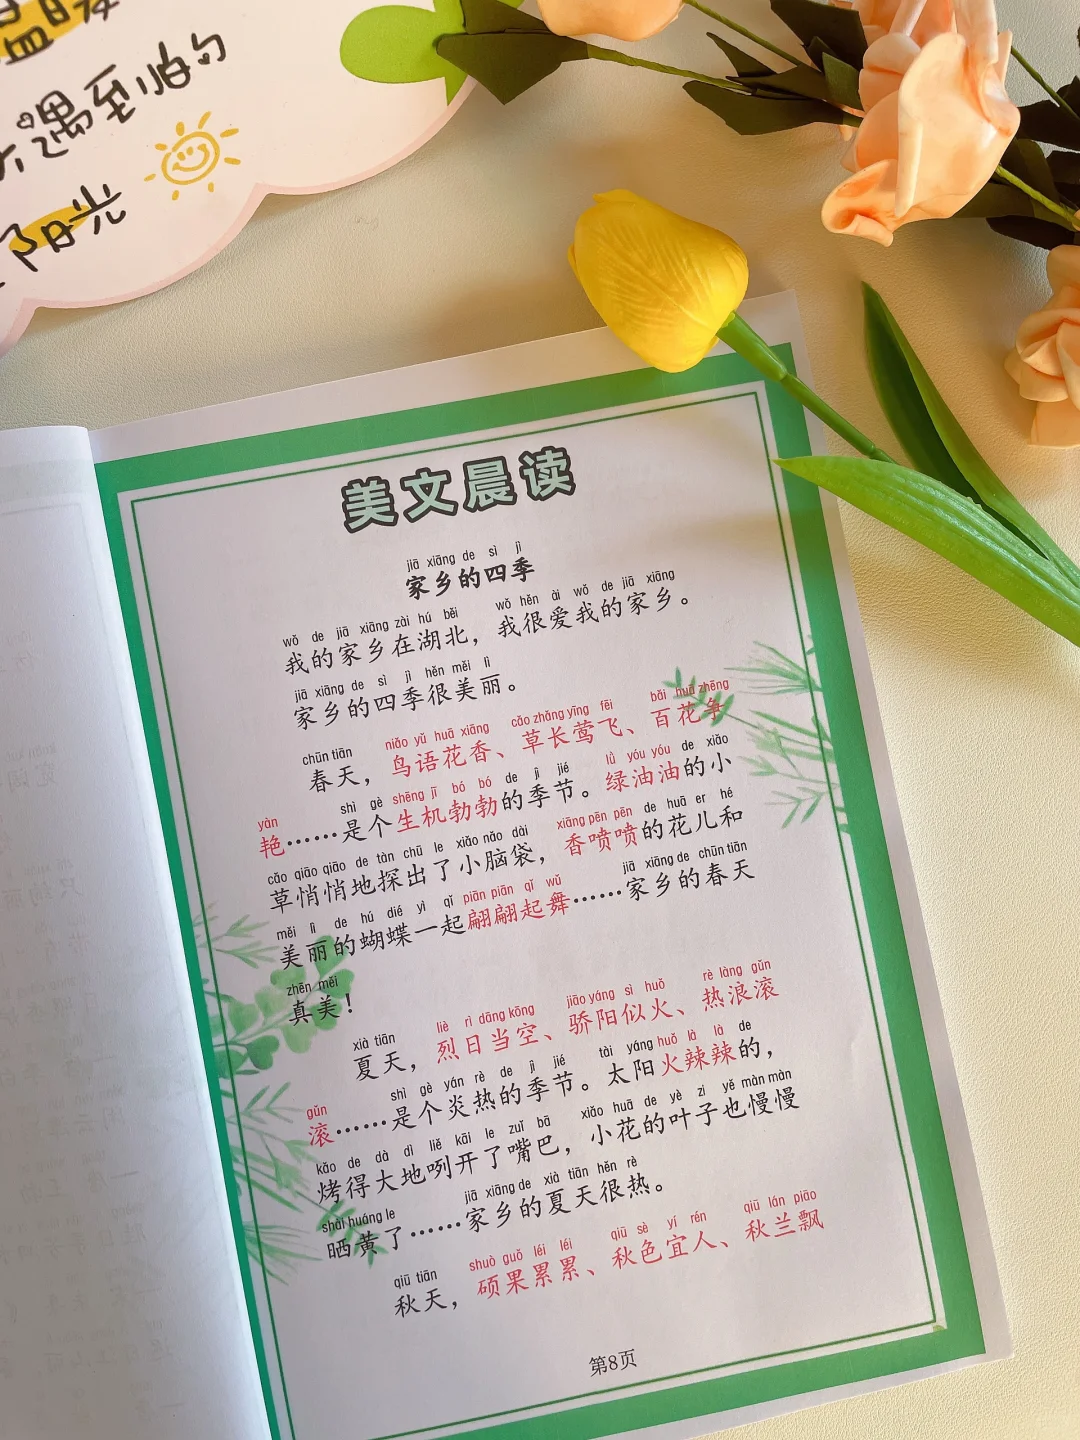 遇到怕的
阳光
美文晨读
jiā xiāng de sì jì
家乡的四季
wǒ de jiā xiāng zài hú běi wǒ hěn ài wǒ de jiā xiāng
我的家乡在湖北，我很爱我的家乡。
jiā xiāng de sì jì hěn měi lì
家乡的四季很美丽。
chūn tiān niǎo yǔ huā xiāng cǎo zhǎng yīng fēi bǎi huā zhēng
春天，鸟语花香、草长莺飞、百花争
yàn shì gè shēng jī bó bó de jì jié lǜ yóu yóu de xiǎo
艳……是个生机勃勃的季节。绿油油的小
cǎo qiāo qiāo de tàn chū le xiǎo nǎo dài xiāng pēn pēn de huā er hé
草悄悄地探出了小脑袋，香喷喷的花儿和
měi lì de hú dié yì qǐ piān piān qǐ wǔ jiā xiāng de chūn tiān
美丽的蝴蝶一起翩翩起舞……家乡的春天
zhēn měi
真美！
xià tiān liè rì dāng kōng jiāo yáng sì huǒ rè làng gǔn
夏天，烈日当空、骄阳似火、热浪滚
gǔn shì gè yán rè de jì jié tài yáng huǒ là là de
滚……是个炎热的季节。太阳火辣辣的，
kǎo de dà dì liě kāi le zuǐ bā xiǎo huā de yè zi yě màn màn
烤得大地咧开了嘴巴，小花的叶子也慢慢
shài huáng le jiā xiāng de xià tiān hěn rè
晒黄了……家乡的夏天很热。
qiū tiān shuò guǒ léi léi qiū sè yí rén qiū lán piāo
秋天，硕果累累、秋色宜人、秋兰飘
第8页